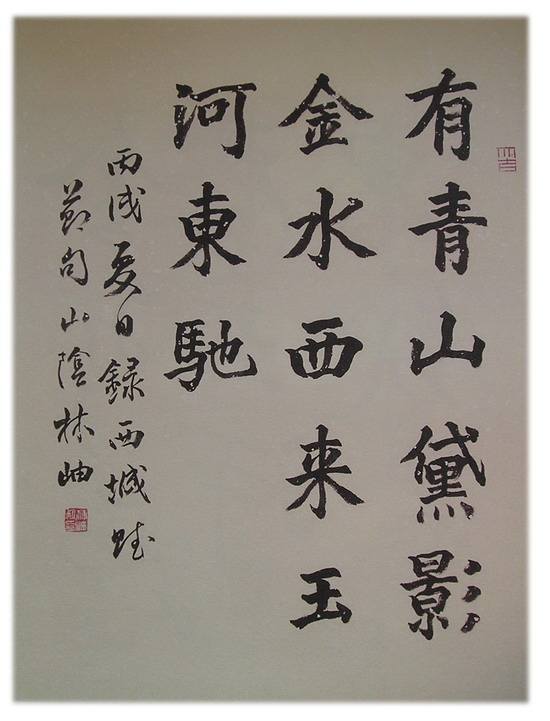 有青山黛影
金水西来玉
河東馳
丙戌夏日錄西城賦
節句山陰林岫